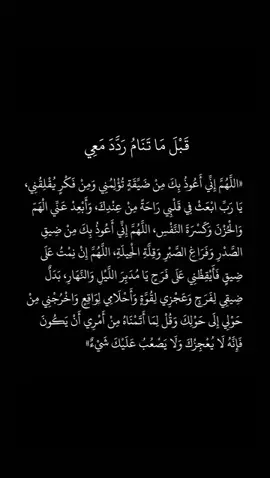 قَبْلَ مَا تَنَامُ رَدِّدَ مَعِي
«اللَّهُمَّ إِنِّي أَعُوذُ بِكَ مِنْ ضَيِّقَةٍ تُؤْلِمُنِي وَمِنْ فَكْرٍ يُقْلِقُنِي،
يَا رَبِّ ابْعَثْ فِي قَلْبِي رَاحَةً مِنْ عِنْدِكَ، وَأَبْعِدْ عَنِّي الْهَمَّ
وَالْحُزْنَ وَكَسْرَةَ النَّفْسِ، اللَّهُمَّ إِنِّي أَعُوذُ بِكَ مِنْ ضِيقِ
الصَّدْرِ وَفَرَاغِ الصَّبْرِ وَقِلَّةِ الْحِيلَةِ، اللَّهُمَّ إِنْ نِمْتُ عَلَى
ضِيقٍ فَأَيْقِظْنِي عَلَى فَرَجٍ يَا مُدَبِّرَ اللَّيْلِ وَالنَّهَارِ، بَدِّلْ
ضِيقِي لِفَرَجٍ وَعَجْزِي لِقُوَّةٍ وَأَحْلَامِي لِوَاقِعٍ وَاخْرُجْنِي مِنْ
حَوْلِي إِلَى حَوْلِكَ وَقُلْ لِمَا أَتَمْنَاهُ مِنْ أَمْرِي أَنْ يَكُونَ
فَإِنَّهُ لَا يُعْجِزُكَ وَلَا يَصْعُبُ عَلَيْكَ شَيْءٌ»